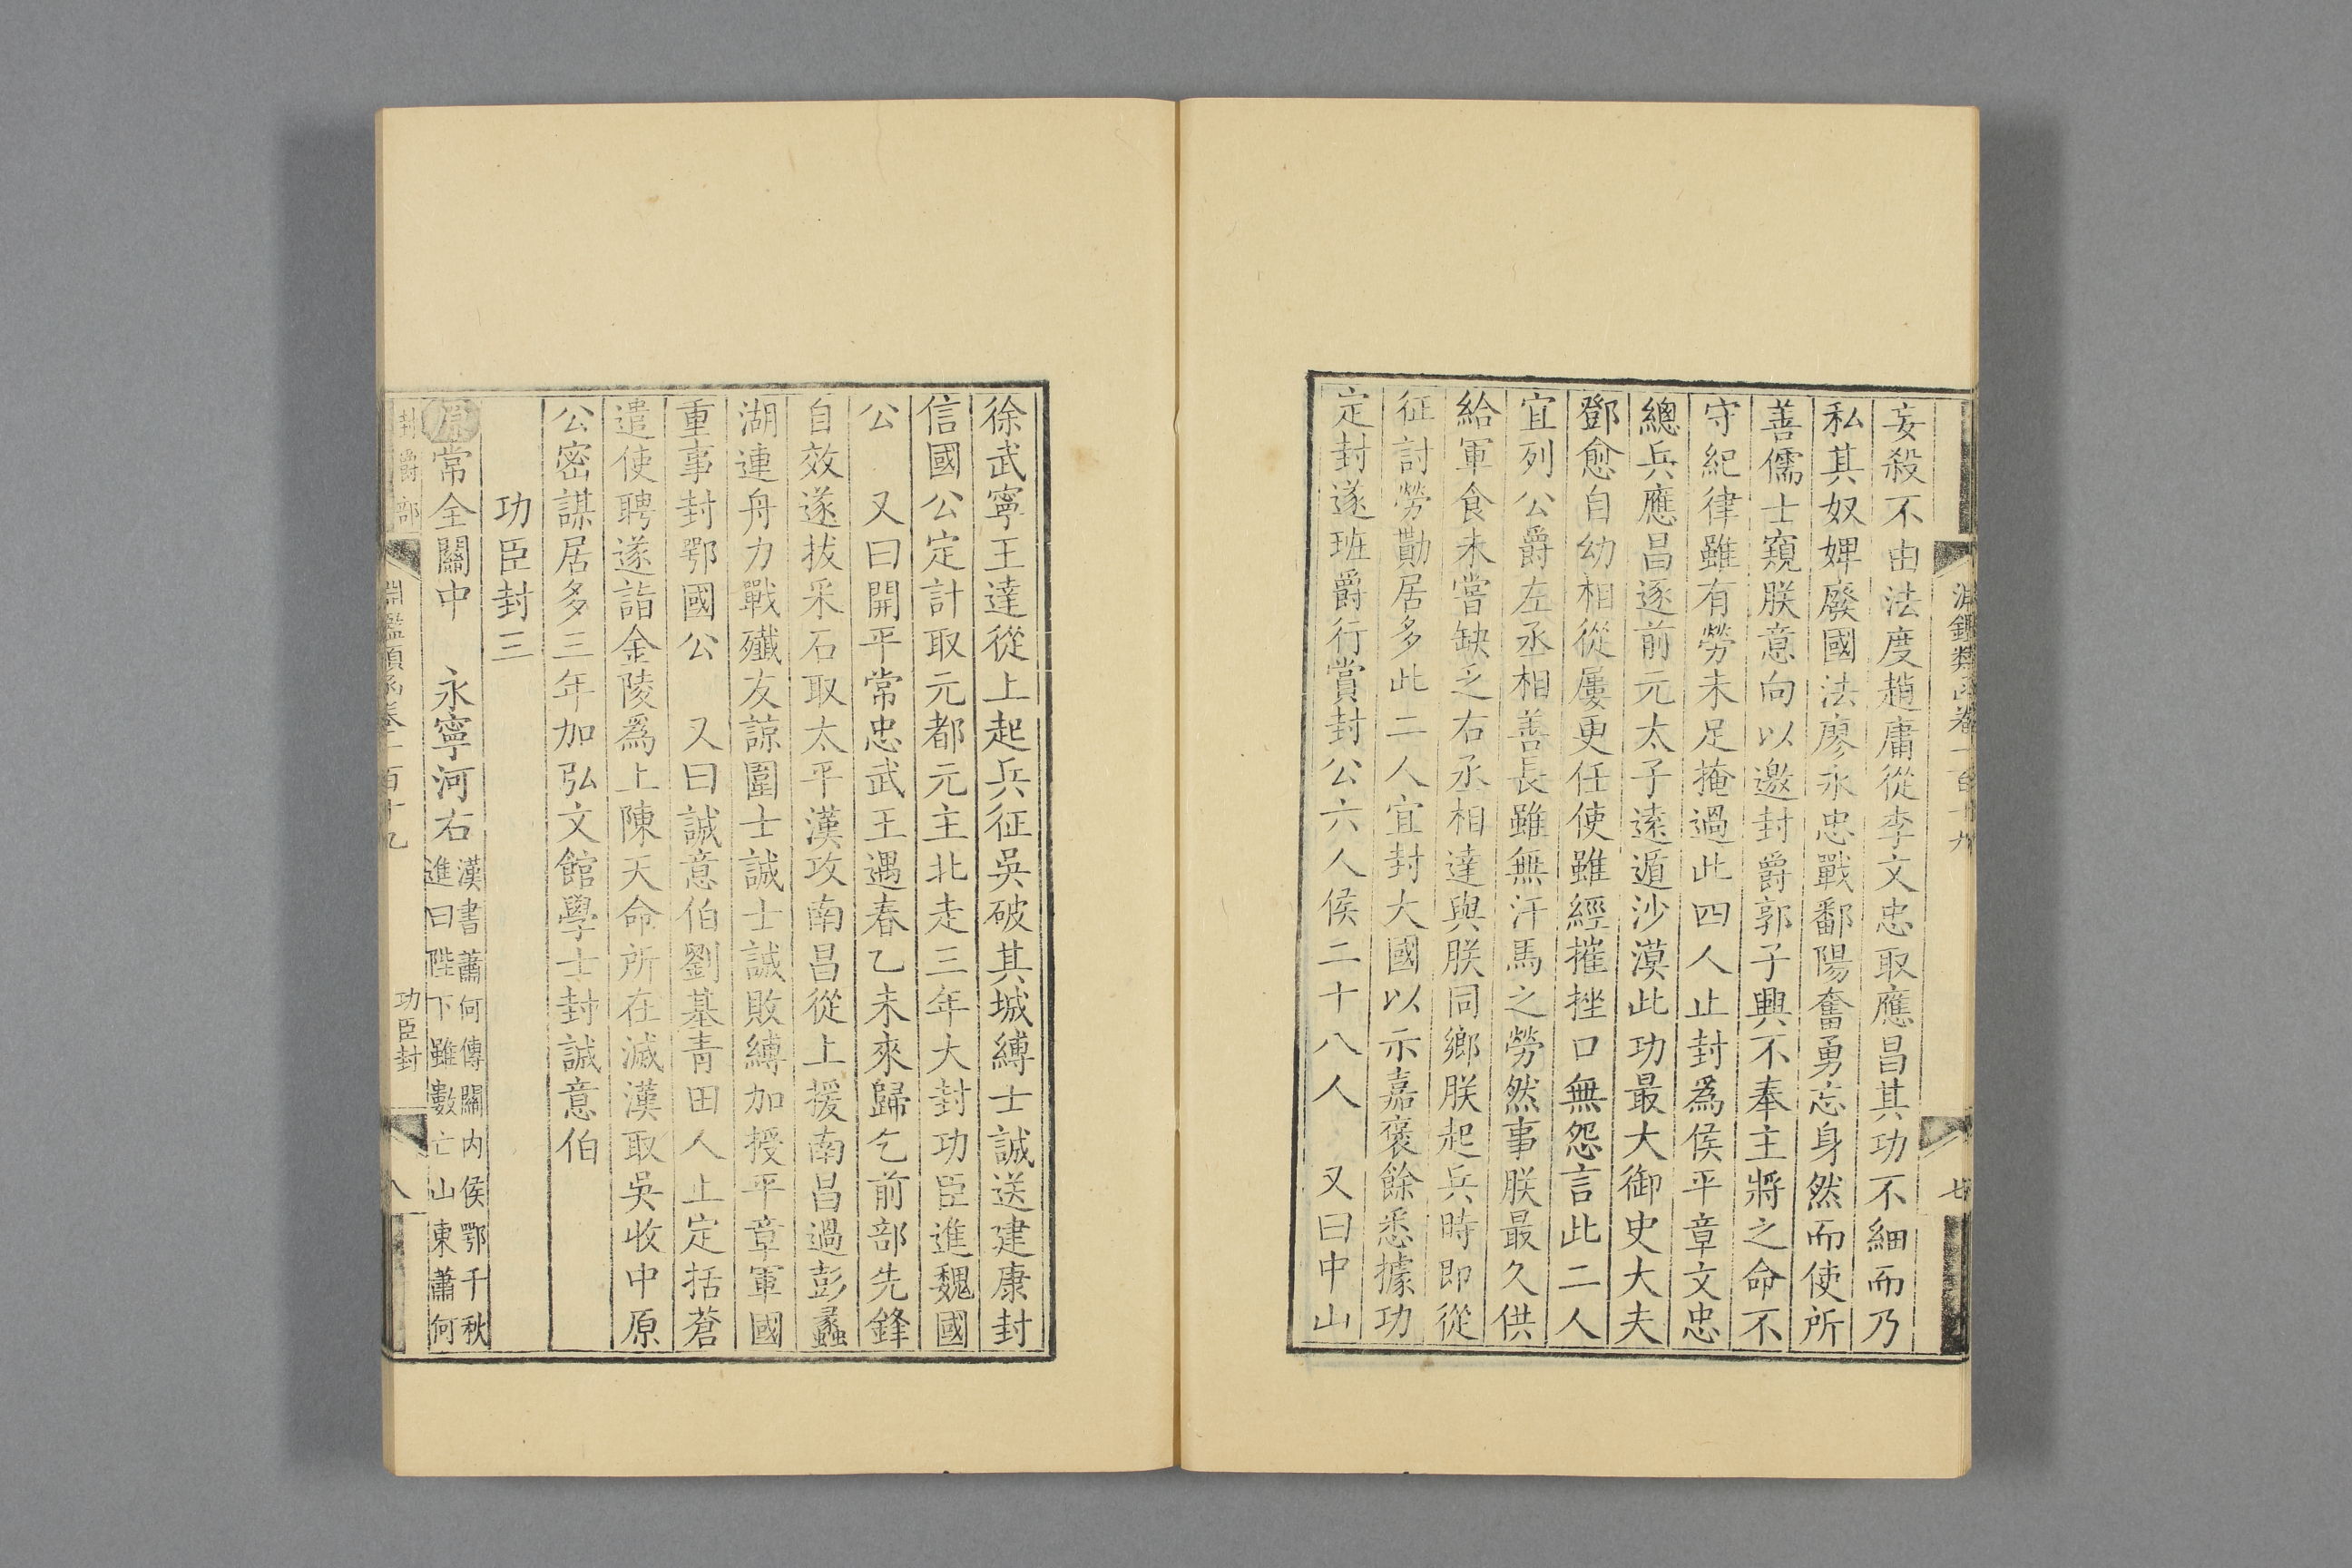 淵鑑類函卷一百十九
七
妄殺不由法度趙庸從李文忠取應昌其功不細而乃
私其奴婢廢國法廖永忠戰鄱陽奮勇忘身然而使所
善儒士窺朕意向以邀封爵郭子興不奉主將之命不
守紀律雖有勞未足掩過此四人止封爲侯平章文忠
總兵應昌逐前元太子遠遁沙漠此功最大御史大夫
鄧愈自幼相從屢更任使雖經摧挫口無怨言此二人
宜列公爵左丞相善長雖無汗馬之勞然事朕最久供
給軍食未嘗缺乏右丞相達與朕同鄉朕起兵時即從
征討勞勩居多此二人宜封大國以示嘉褒餘悉據功
定封遂班爵行賞封公六人侯二十八人　又曰中山
徐武寧王達從上起兵征吳破其城縛士誠送建康封
信國公定計取元都元主北走三年大封功臣進魏國
公　又曰開平常忠武王遇春乙未來歸乞前部先鋒
自效遂拔采石取太平漢攻南昌從上援南昌過彭蠡
湖連舟力戰殲友諒圍士誠士誠敗縛加授平章軍國
重事封鄂國公　又曰誠意伯劉基青田人止定括蒼
遣使聘遂詣金陵爲上陳天命所在滅漢取吳收中原
公密謀居多三年加弘文館學士封誠意伯
功臣封三
原常全關中　永寧河右漢書蕭何傳關內侯鄂千秋
進曰陛下雖數亡山東蕭何
封爵部
淵鑑類函卷一百十九
功臣封
八